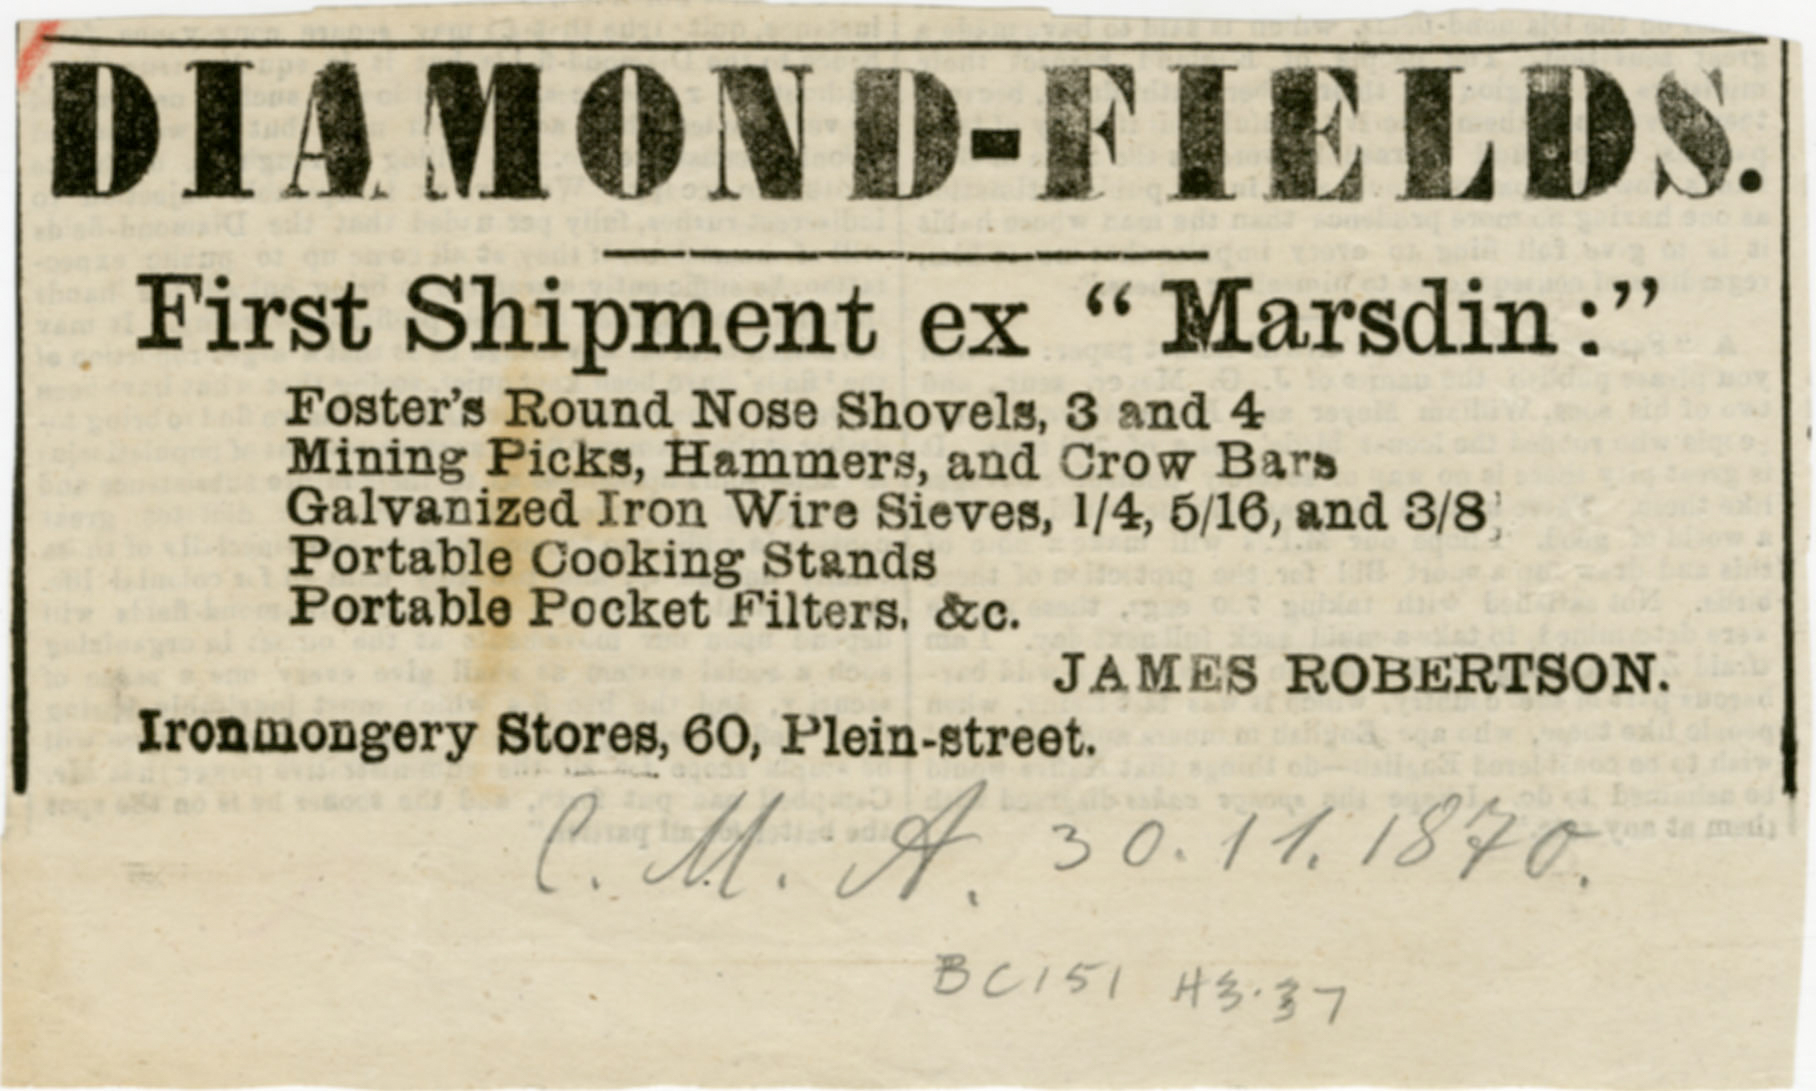 DIAMOND-FIELDS.
First Shipment ex “Marsdin:”
Foster's Round Nose Shovels, 3 and 4
Mining Picks, Hammers, and Crow Bars
Galvanized Iron Wire Sieves, 1/4, 5/16, and 3/8
Portable Cooking Stands
Portable Pocket Filters, &c.
JAMES ROBERTSON.
Ironmongery Stores, 60, Plein-street.
C. M. A. 30.11.1870.
BC151 H3.37